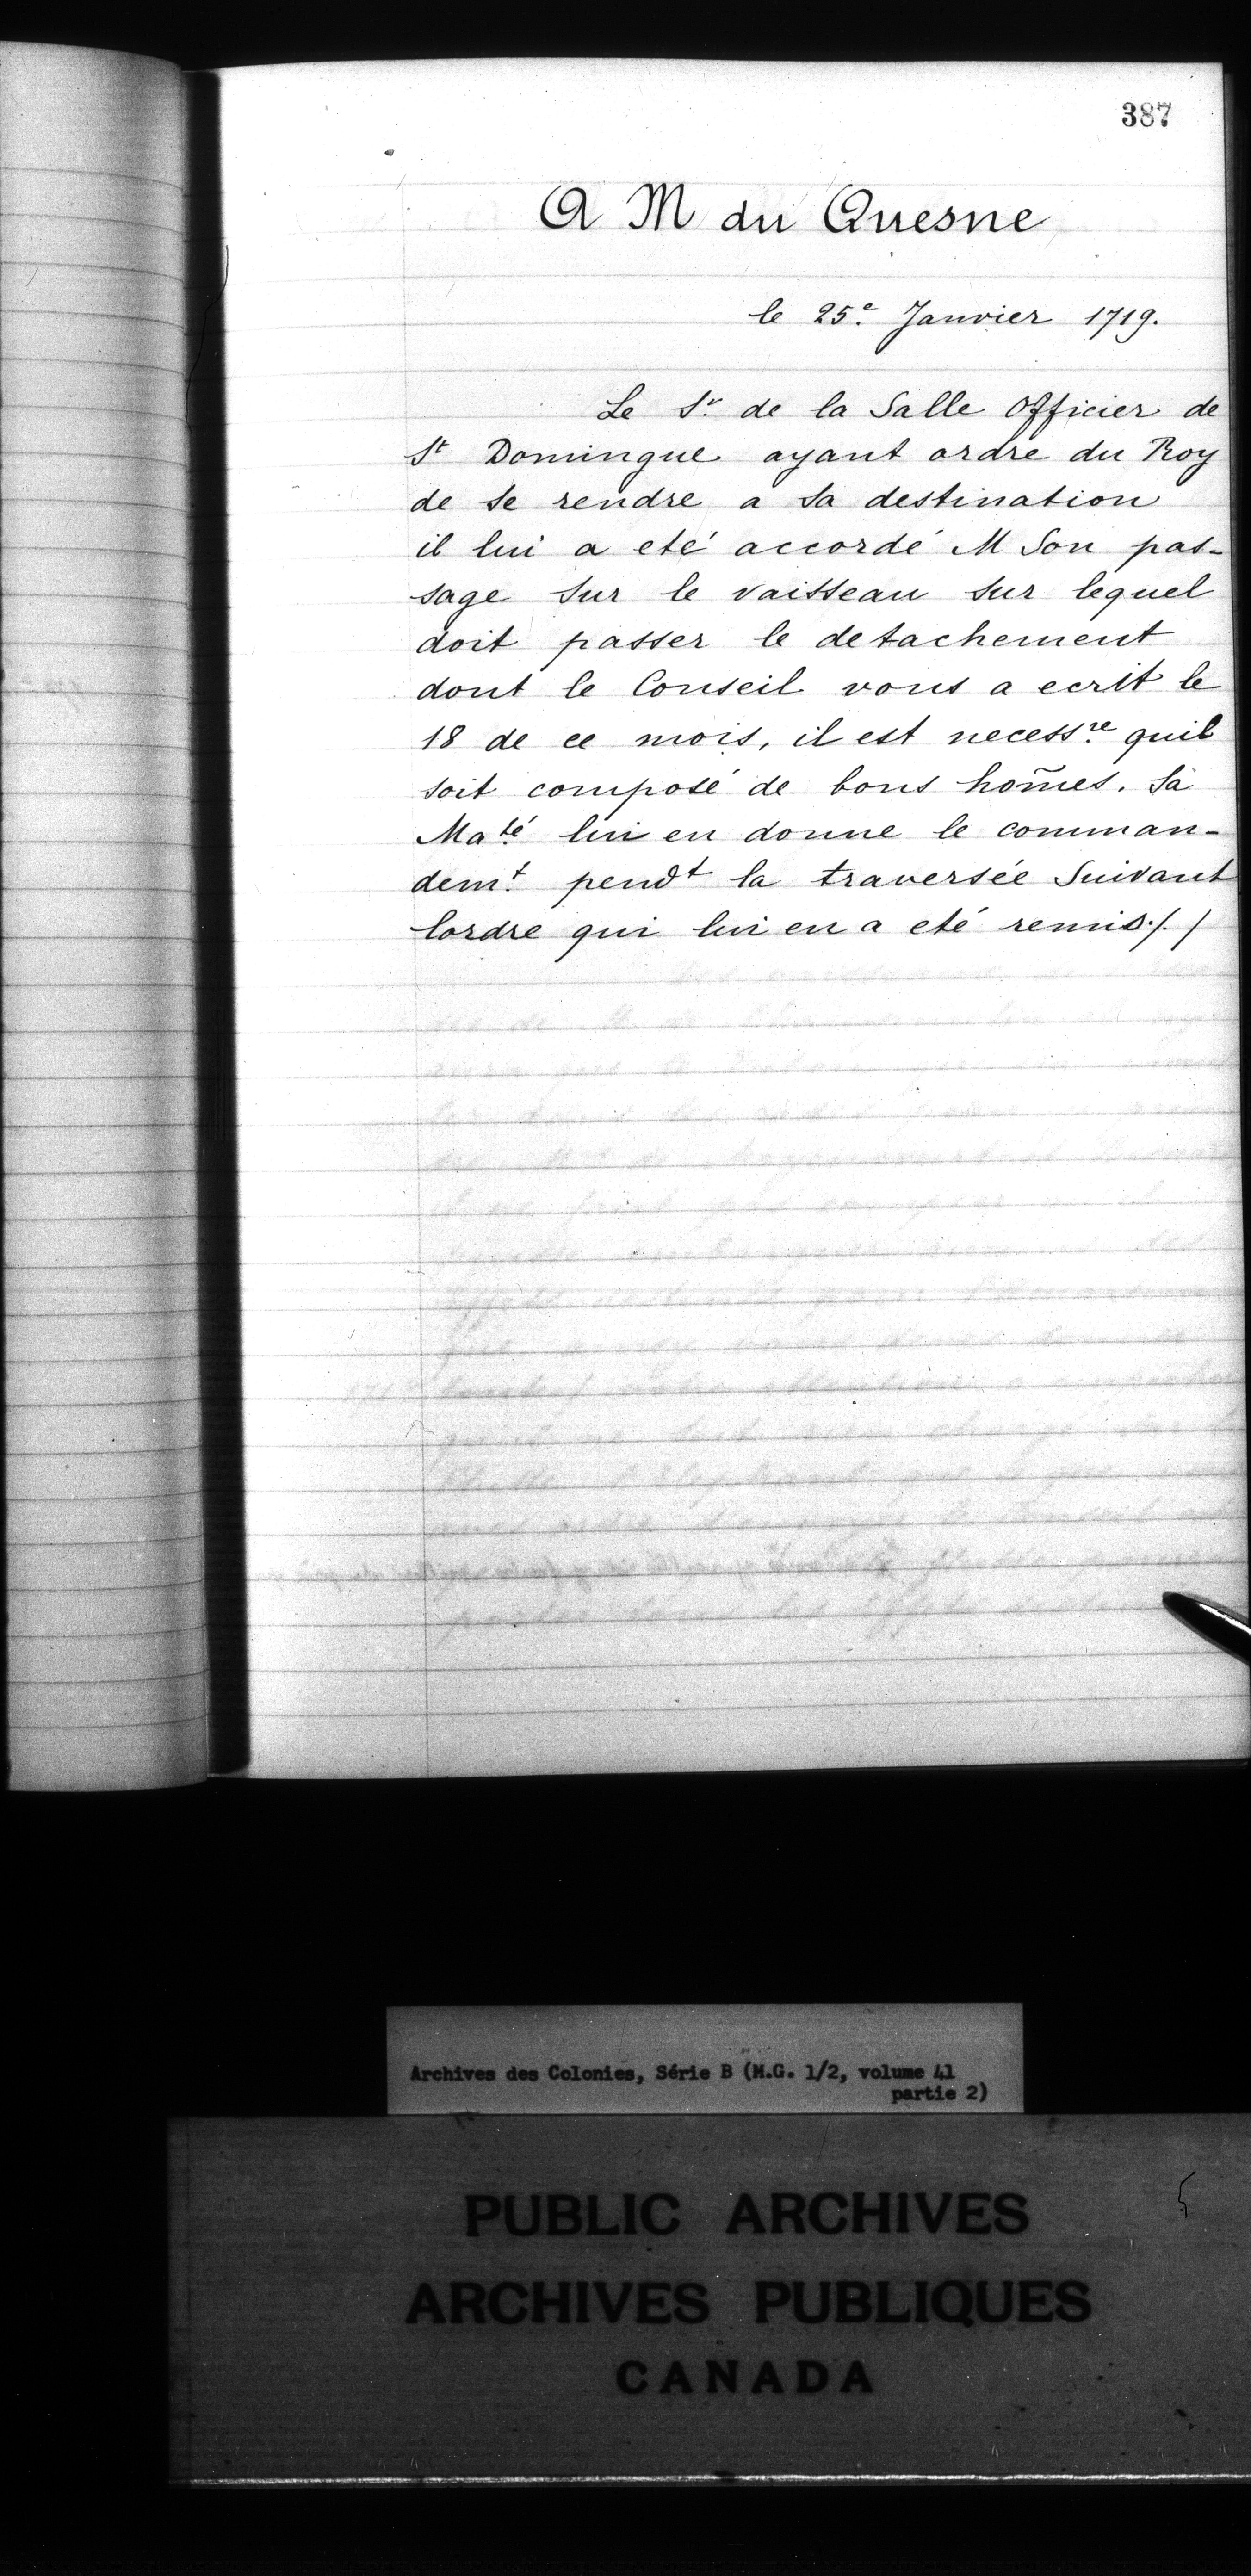 387
A M du Quesne
le 25e. Janvier 1719.
Le Sr. de la Salle Officier de
St Domingue ayant ordre du Roy
de se rendre a sa destination
il lui a eté accordé M Son pas-
sage sur le vaisseau sur lequel
doit passer le detachement
dont le Conseil vous a ecrit le
18 de ce mois, il est necessre. quil
soit composé de bons hom̃es. Sa
Maté. lui en donne le comman-
demt. pendt la traversée Suivant
lordre qui lui en a eté remis./.
Archives des Colonies, Série B (M.G. 1/2, volume 41
partie 2)
PUBLIC ARCHIVES
ARCHIVES PUBLIQUES
CANADA